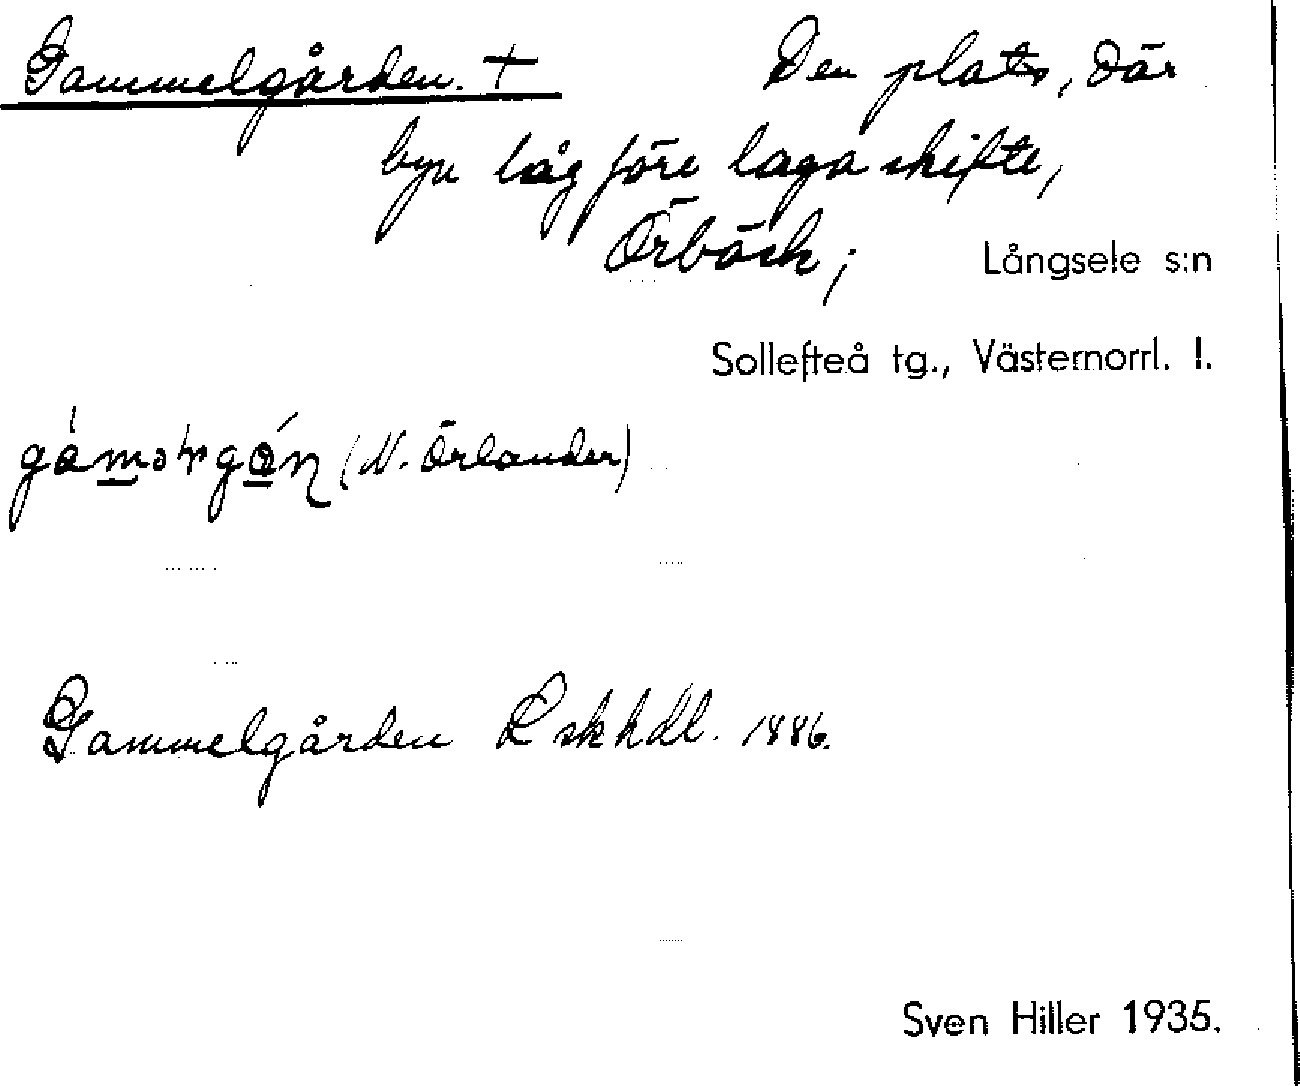 Gammelgården. + Den plats, där
byn låg före laga skifte,
Örbäck; Långsele s:n
Sollefteå tg., Västernorrl. l.
(N. Örlander)
Gammelgården L skhdl. 1886.
Sven Hiller 1935.